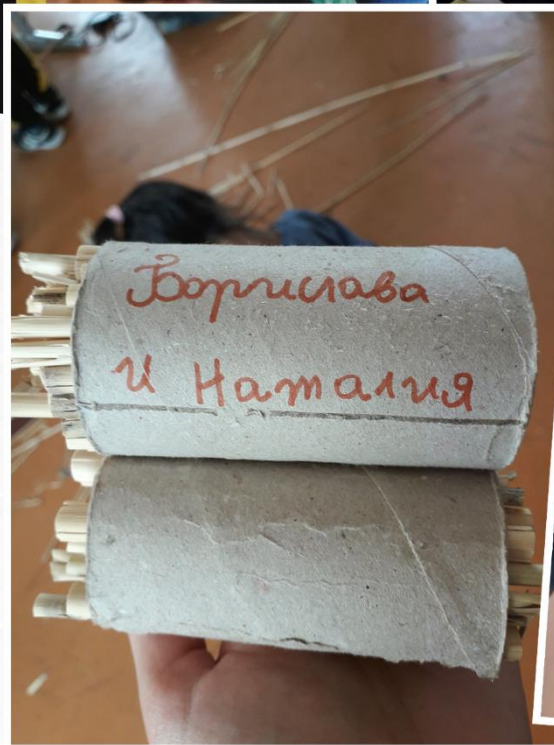 Борислава
и Наталия